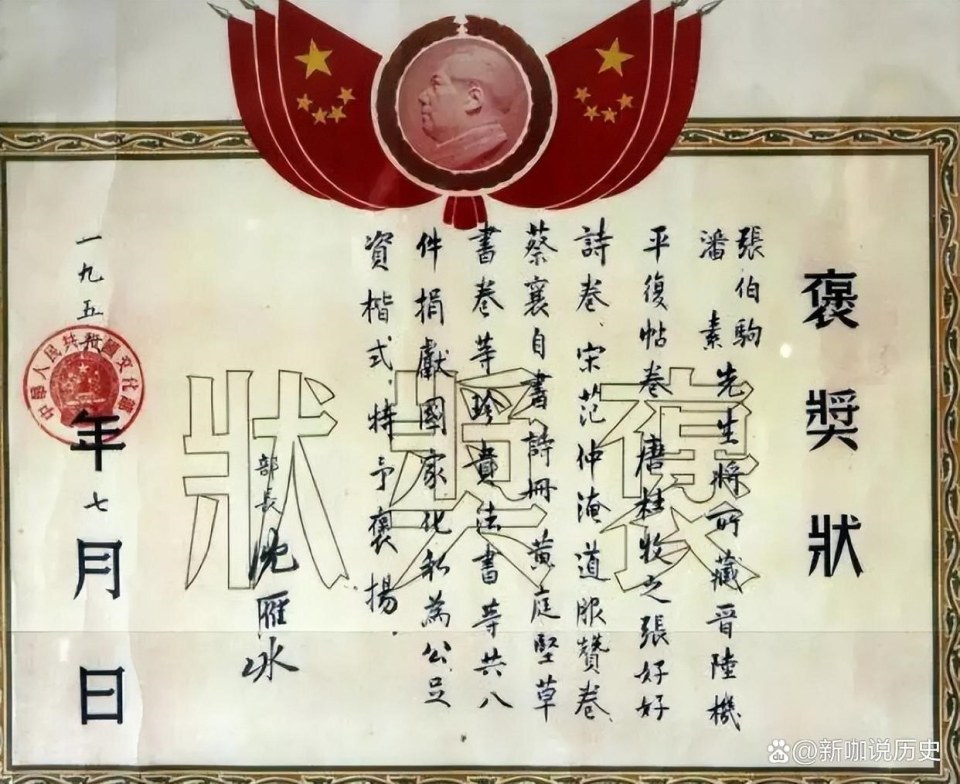 褒獎狀
張伯駒
潘素先生將所藏晋陸機
平復帖卷唐杜牧之張好好
詩卷、宋范仲淹道服贊卷、
蔡襄自書詩冊黃庭堅草
書卷等珍貴法書等共八
件捐獻國家化私為公足
資楷式,特予褒揚.
部長 沈雁冰
一九五 年七月 日
中華人民共和國文化部
褒獎狀
@新咖说历史